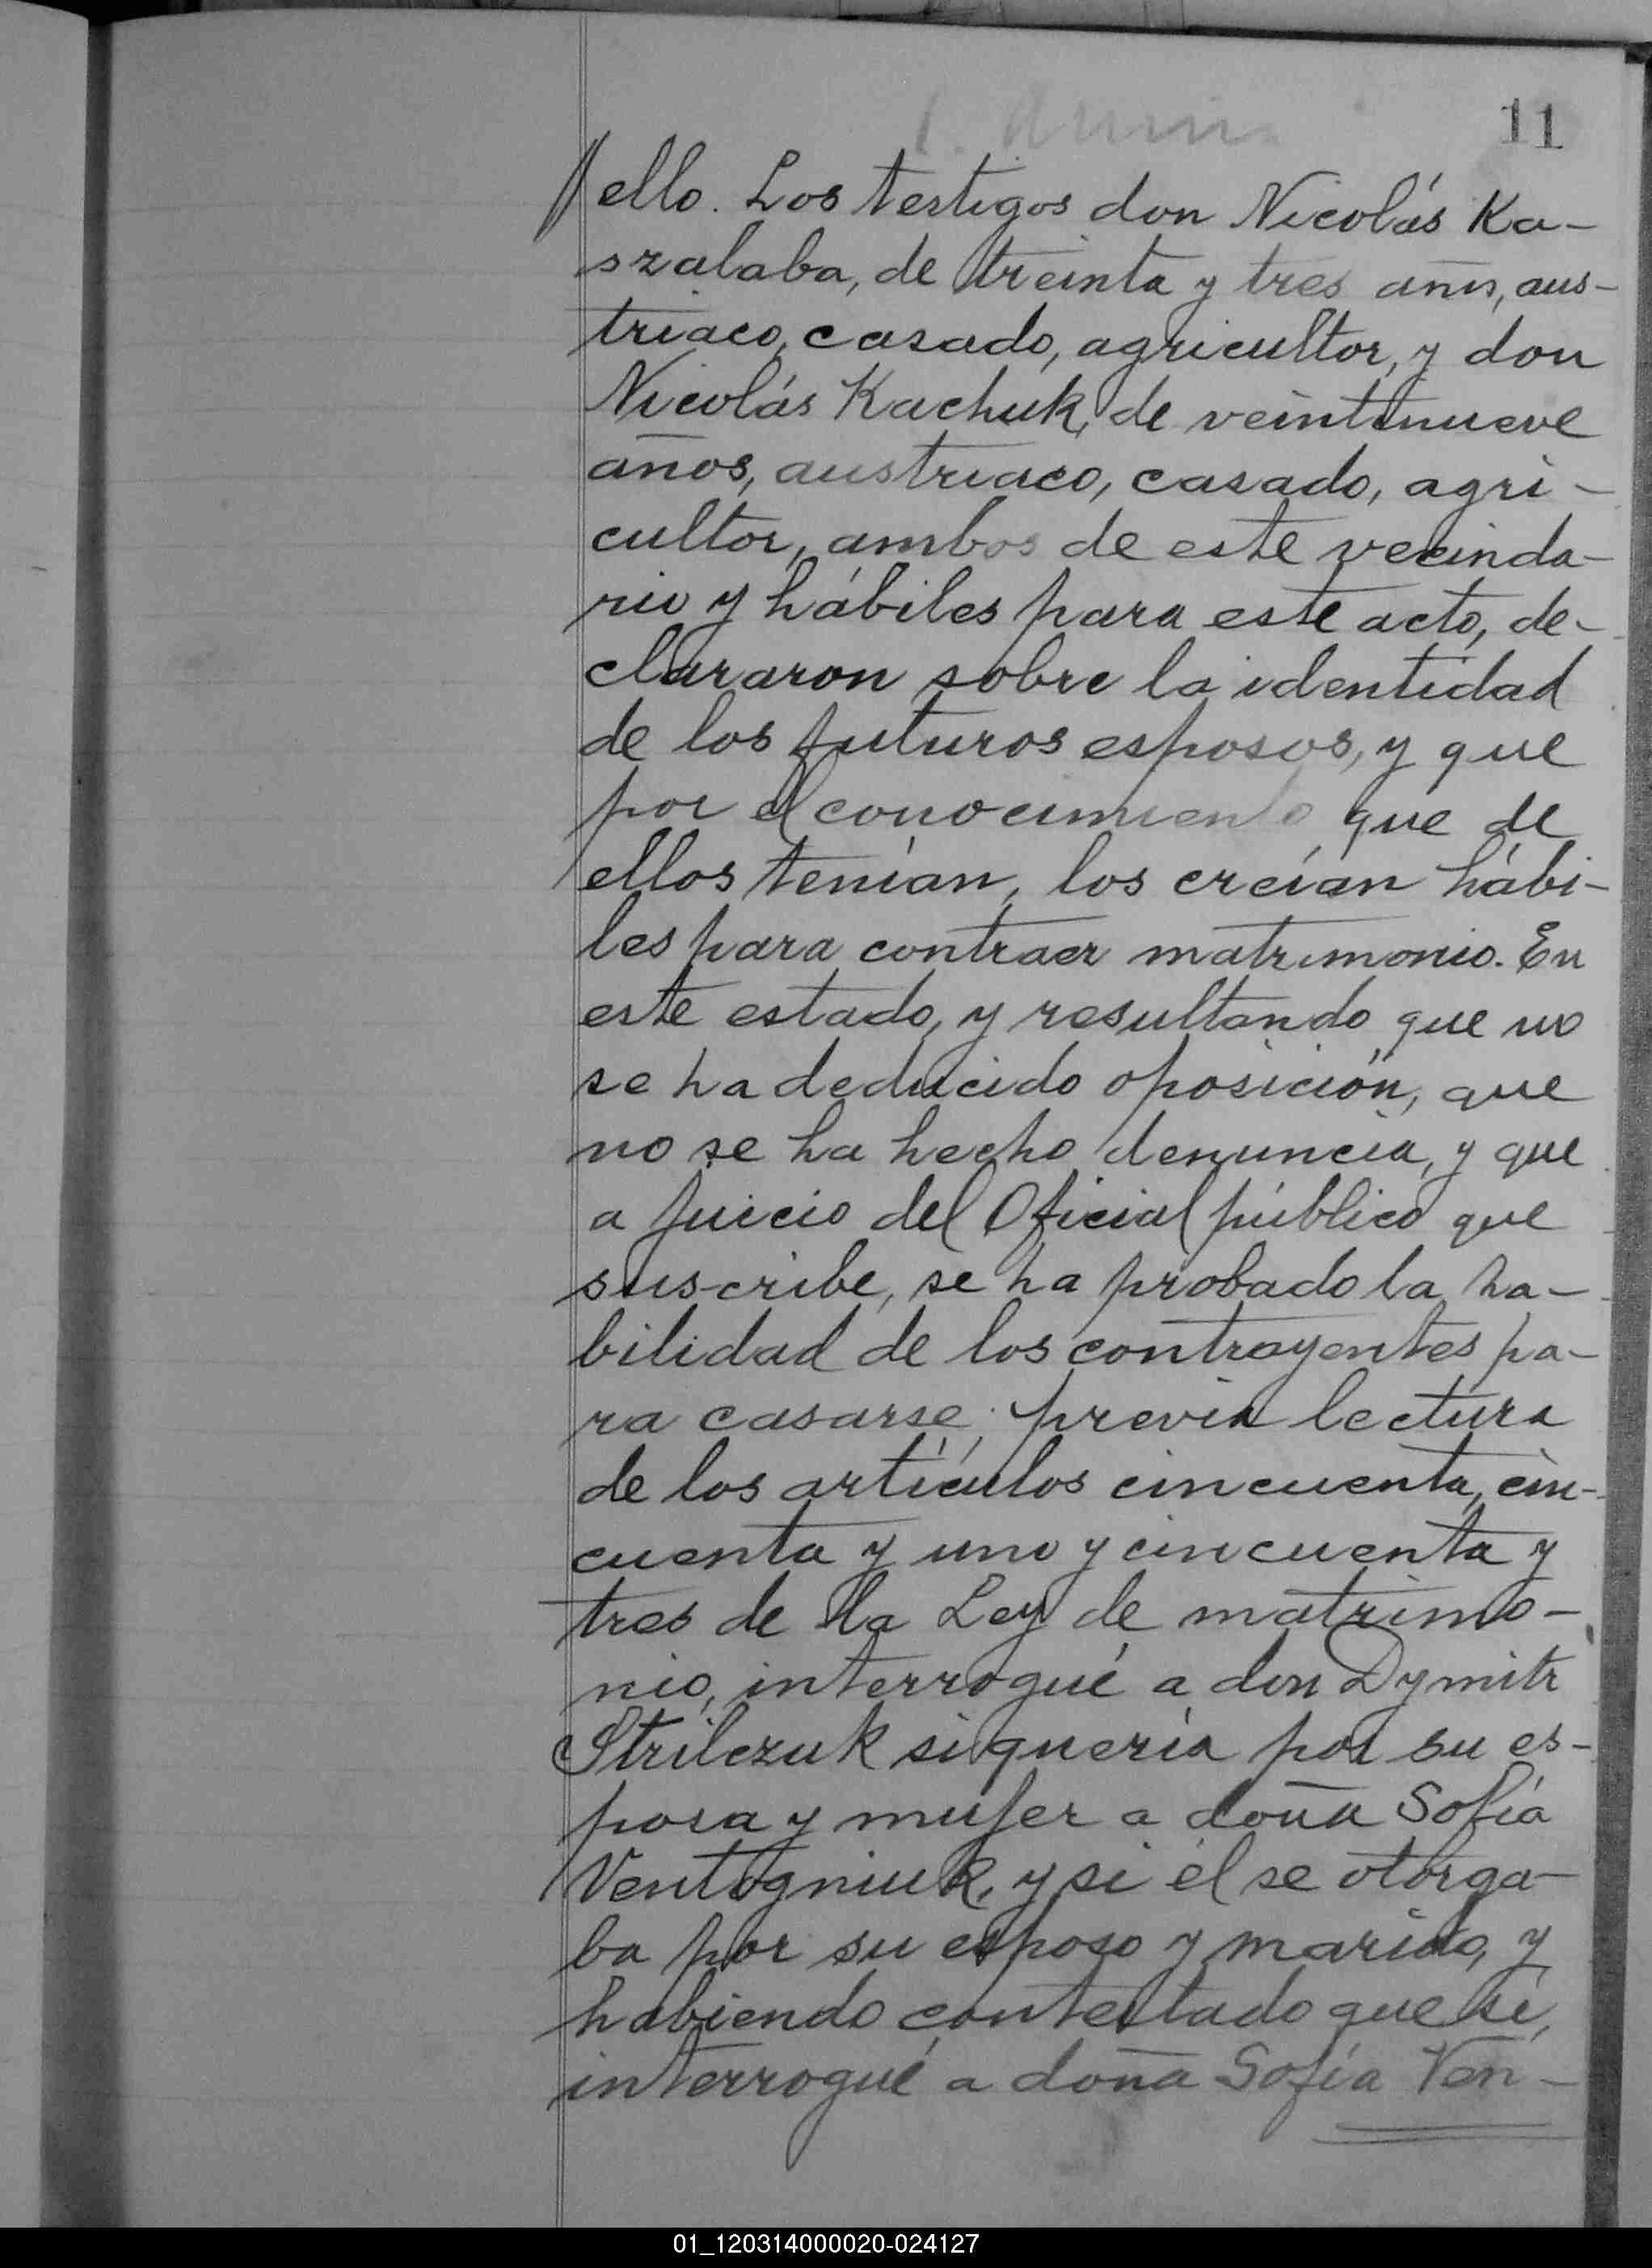 11
ello. Los testigos don Nicolás Ka-
szalaba, de treinta y tres años, aus-
triaco, casado, agricultor, y don
Nicolás Kachuk, de veintinueve
años, austriaco, casado, agri-
cultor, ambos de este vecinda-
rio y hábiles para este acto, de-
clararon sobre la identidad
de los futuros esposos, y que
por el conocimiento que de
ellos tenían, los creían hábi-
les para contraer matrimonio. En
este estado, y resultando que no
se ha deducido oposición, que
no se ha hecho denuncia, y que
a juicio del Oficial público que
suscribe, se ha probado la ha-
bilidad de los contrayentes pa-
ra casarse; previa lectura
de los artículos cincuenta, cin-
cuenta y uno y cincuenta y
tres de la Ley de matrimo-
nio, interrogué a don Dymitr
Strilczuk si quería por su es-
posa y mujer a doña Sofía
Ventogniuk, y si él se otorga-
ba por su esposo y marido, y
habiendo contestado que sí,
interrogué a doña Sofía Ven-
01_120314000020-024127